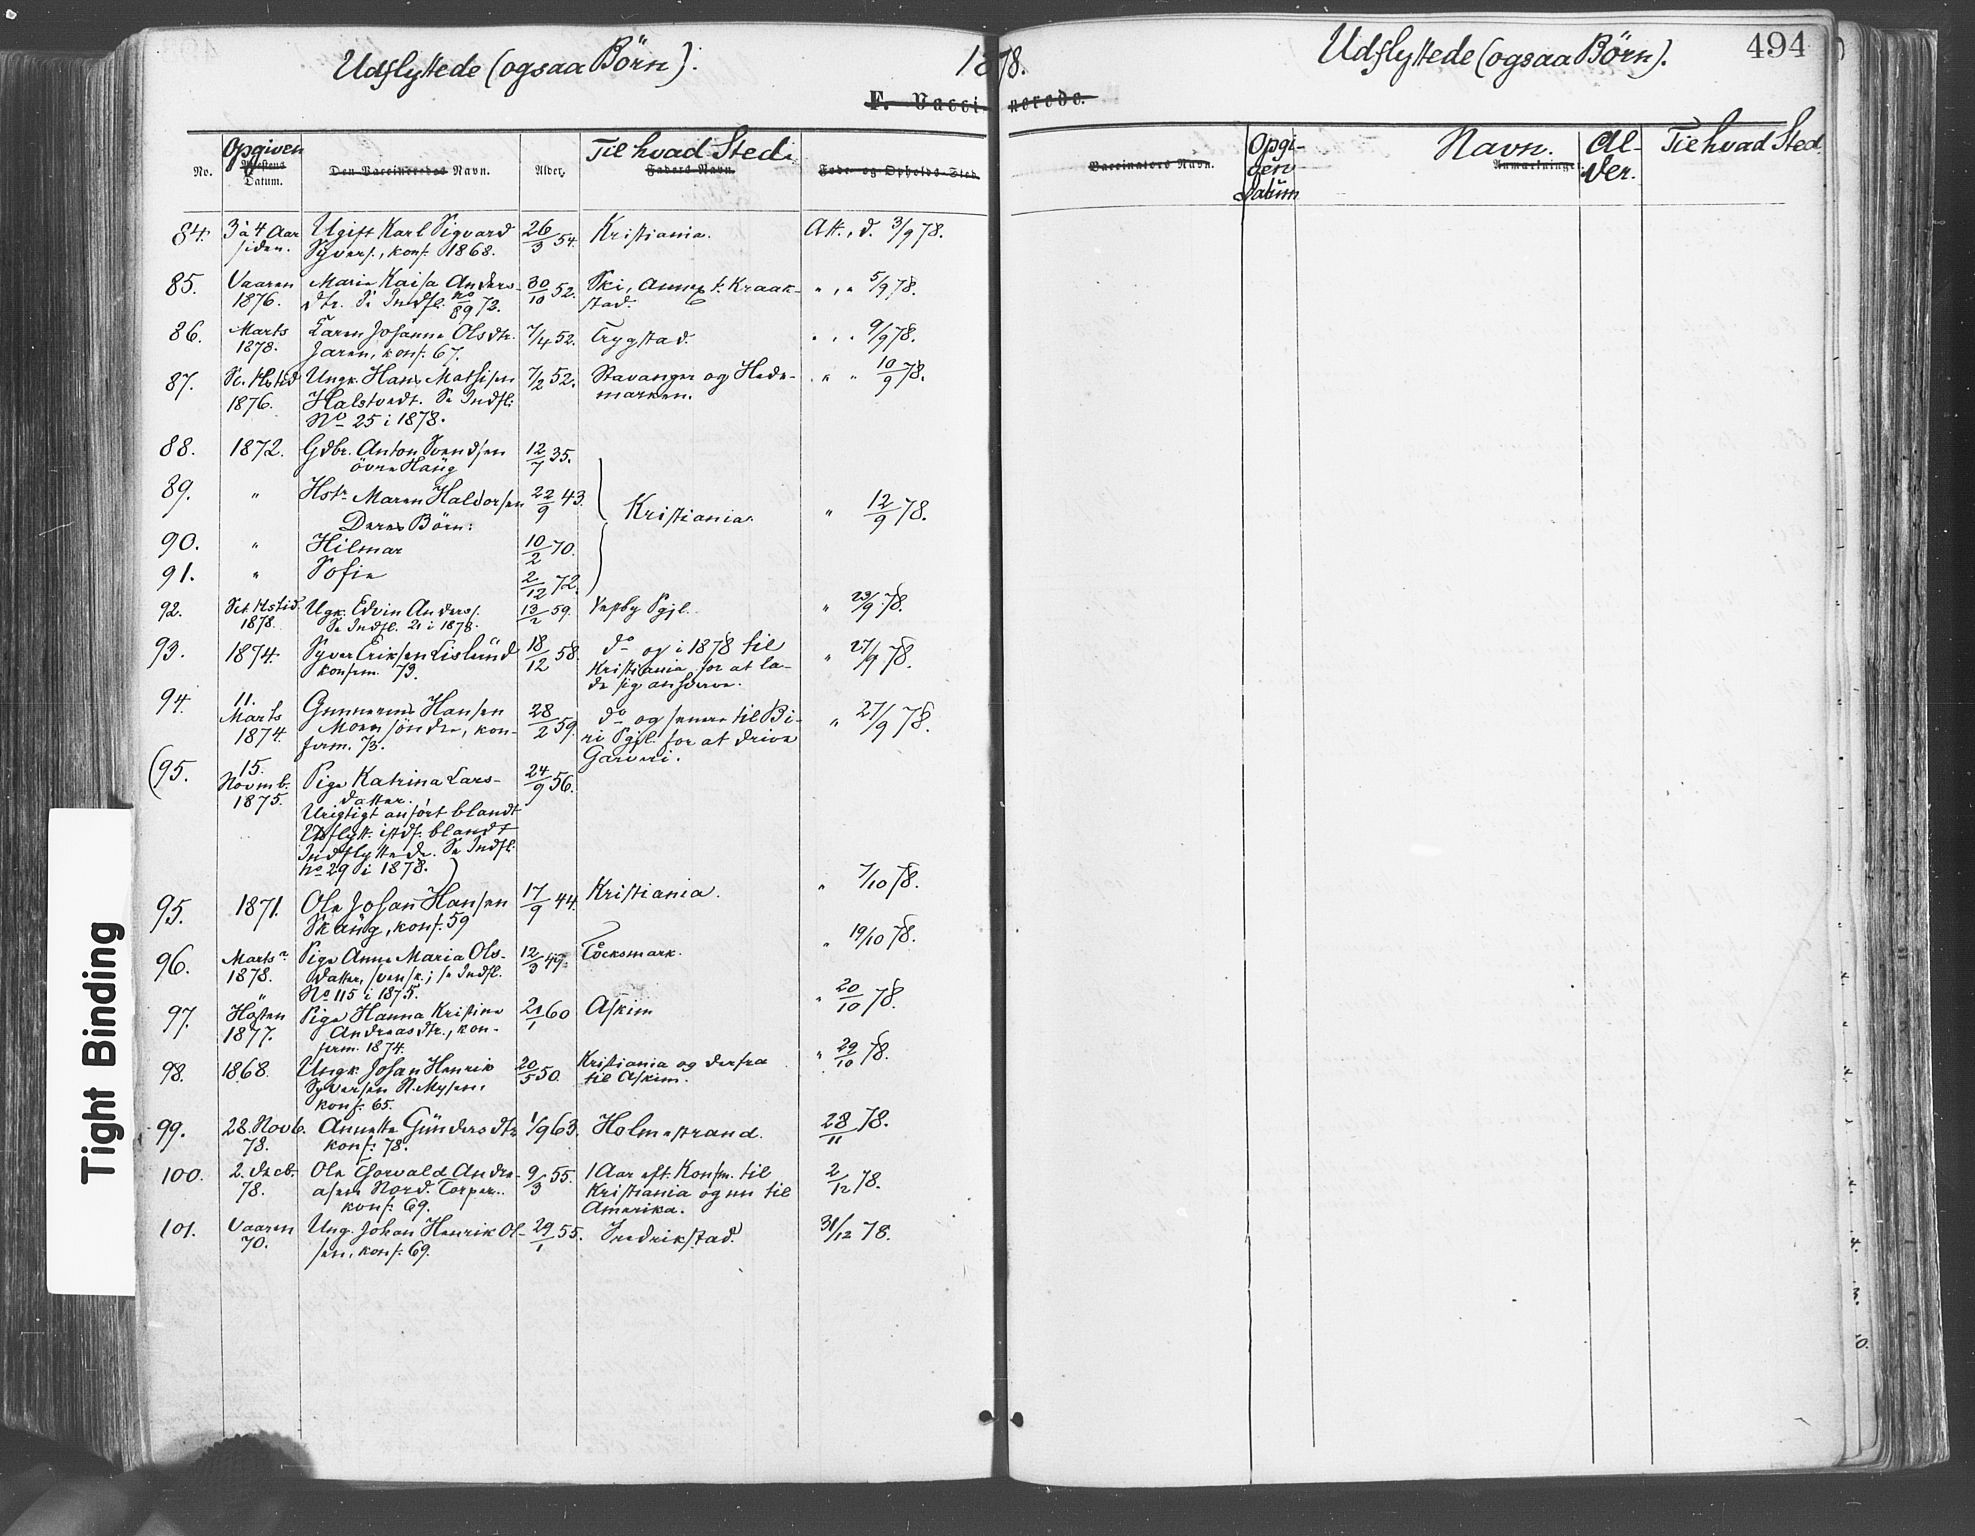 Udflyttede (ogsaa Børn).
1878.
Udflyttede (ogsaa Børn).
494
F. Vaccinerede.
No.
Opgiven
Attestens
Datum.
Den Vaccineredes Navn.
Alder.
Til hvad Sted.
Faders Navn.
Føde- og Opholds-Sted.
Vaccinators Navn.
Opgi-
ven
Datum
Navn.
Anmærkninger.
Al-
der.
Til hvad Sted.
84. 3 à 4 Aar Ugift Karl Sigvard 26/3 54. Kristiania. Att., d. 3/9 78.
siden. Syvers., konf. 1868.
85. Vaaren Maria Kaisa Anders- 30/10 52. Ski, Annex t. Kraak- " , " 5/9 78.
1876. dtr. Se Indfl. No 89 73. stad.
86. Marts Karen Johanne Olsdtr. 7/4 52. Trygstad. " " " 9/9 78.
1878. Jaren, konf. 67.
87. St. Hstid Ungk. Hans Mathisen 7/2 52. Stavanger og Hede- " " " 10/9 78.
1876. Halstvedt. Se Indfl. marken.
No 25 i 1878.
88. 1872. Gdbr. Anton Svendsen 12/7 35.
övre Haug
89. " Hstr. Maren Haldorsen 22/9 43. Kristiania. " 12/9 78.
Deres Börn:
90. " Hilmar 10/2 70.
91. " Sofie 2/12 72.
92. Sct. Hstid. Ugk. Edvin Anders. 13/2 59. Vestby Pgjl. " 23/9 78.
1878. Se Indfl. 21 i 1878.
93. 1874. Syver Eriksen Lislund 18/12 58. do og i 1878 til " 27/9 78.
konfirm. 73. Kristiania for at la-
de sig anhverve.
94. 11. Gunnerius Hansen 28/2 59. do og senere til Bi- " 27/9 78.
Marts Moen söndre, kon- ri Pgjl. for at drive
1874. firm. 73. Garveri.
(95. 15. Pige Katrina Lars- 24/9 56.
Novmb. datter.
1875. Urigtigt anfört blandt
Udflytt. istdf. blandt
Indflyttede. Se Indfl.
No 29 i 1878.)
95. 1871. Ole Johan Hansen 17/9 44. Kristiania. " 7/10 78.
Skaug, konf. 59
96. Marts Pige Anne Maria Ols- 12/3 49. Töcksmark. " 19/10 78.
1878. datter, svensk; se Indfl.
No 115 i 1875.
97. Hösten Pige Hanna Kristine 21/1 60 Askim " 20/10 78.
1877. Andreasdtr., kon-
firm. 1874.
98. 1868. Ungk. Johan Henrik 20/5 50. Kristiania og derfra " 29/10 78.
Syversen N. Mysen, til Askim.
konf. 65.
99. 28. Novb. Annette Gundersdtr 1/9 63. Holmestrand. 28/11 78.
78. konf. 78.
100. 2. Decb. Ole Thorvald Andre- 9/3 55. 1 Aar eft. Konfm. til 2/12 78.
78. asen Nord. Torper. Kristiania og nu til
konf. 69. Amerika.
101. Vaaren Ung. Johan Henrik Ol- 29/1 55. Fredrikstad. 31/12 78.
70. sen, konf. 69.
Tight Binding